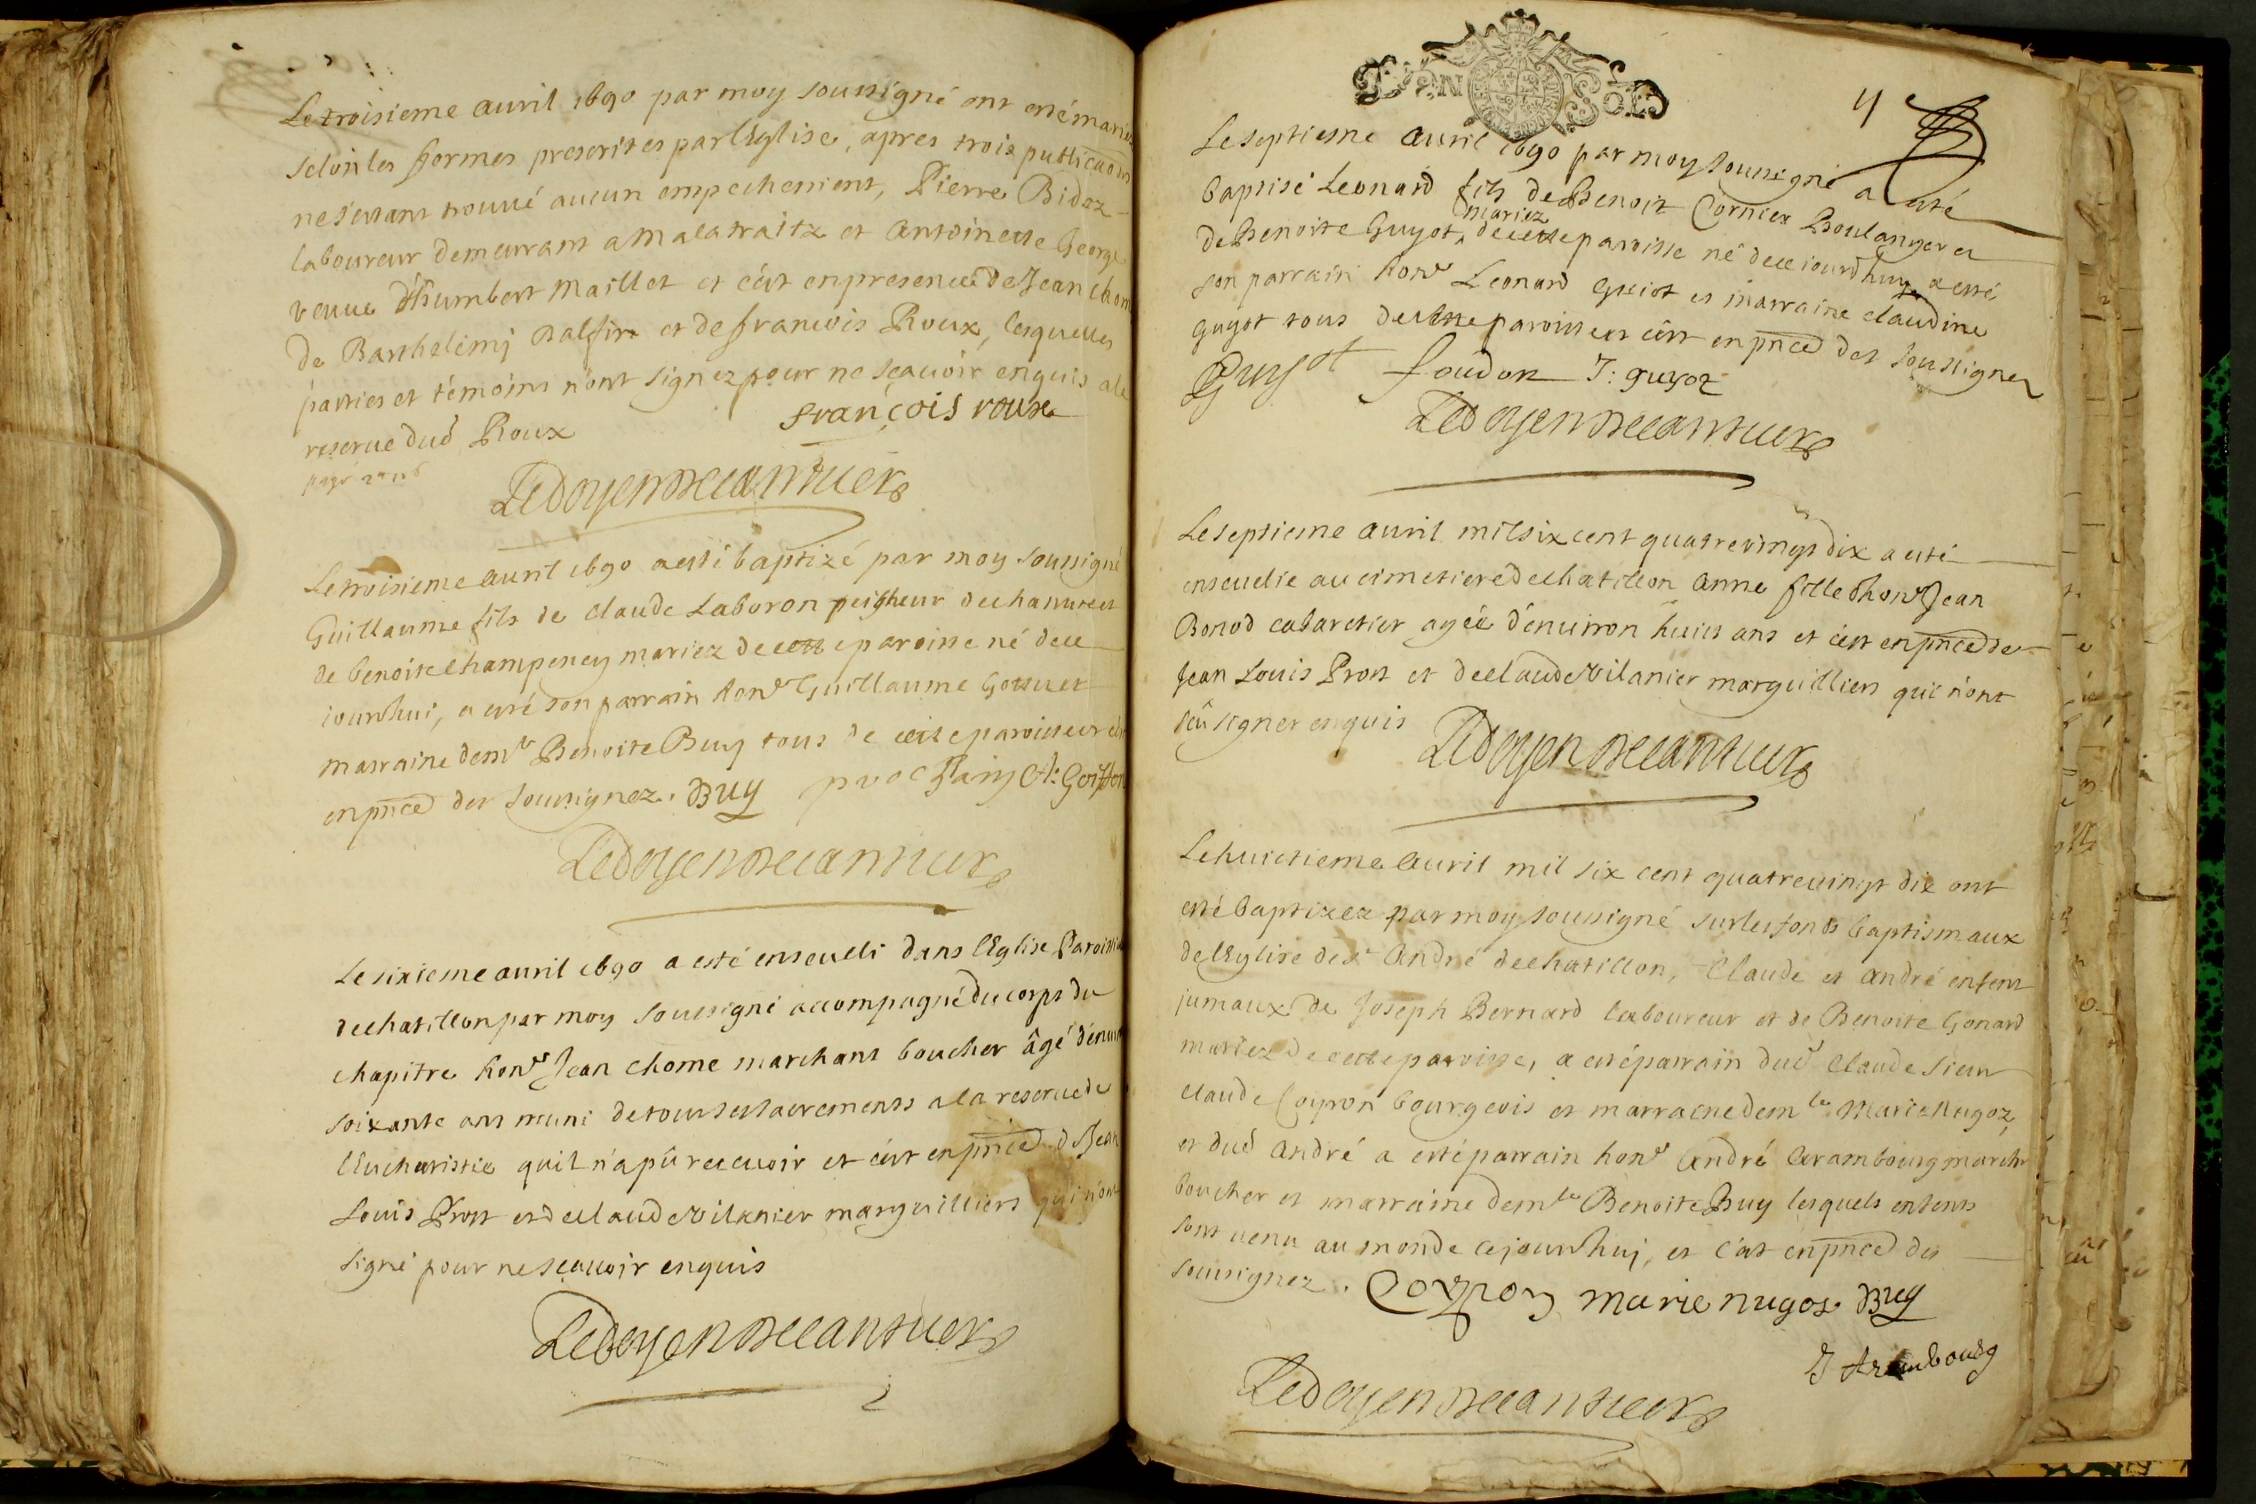 Le troisieme auril 1690 par moy soussigné ont esté mariez
selon les formes prescrites par l'Eglise, apres trois publicaons
ne s'estant trouué aucun empechement, Pierre Bidoz
laboureur demeurant a Malatraitz et Antoinette George
veuue d'humbert Maillet et c'est en presence de Jean Chon
de Barthelemj et de francois Roux, lesquelles
parties et témoins n'ont signez pour ne sçauoir enquis a la
reserue dud Roux françois roux
Ledoyen
Le troisieme auril 1690 a esté baptizé par moy soussigné
Guillaume fils de Claude Laboron peigneur de chanure et
de benoite Champeney mariez de cette paroisse né de ce
iourdhui, a esté son parrain hon^e Guillaume Gottuet
marraine dem^le Benoite Buy tous de cette paroisse et c'est
en pnce des soussignez. Buy
Ledoyen
Le sixieme auril 1690 a esté enseueli dans l'Eglise Paroissi
de chatillon par moy soussigné accompagné du corps du
chapitre hon^e Jean Chome marchant boucher âgé d'enuir
soixante ans muni de tous ses sacrements a la reserue de
l'Eucharistie quil n'a pû receuoir et c'est en pnce d Jean
Louis Prost et de claude Vilanier marguilliers qui n'ont
signé pour ne sçauoir enquis
Ledoyen
UN SOL
4
Le septiesme auril 1690 par moy soussigné a esté
baptisé Leonard fils de Benoit Cornier Boulanger et
mariez
de Benoite Guyot, de cette paroisse né de ce iourdhuy a esté
son parrain hon^e Leonard Guiot et marraine claudine
guyot tous de cette paroisse et c'est en pnce des soussignez
Guyot foudon J: guyot
Ledoyen
Le septieme auril mil six cent quatre vingt dix a esté
enseuelie au cimetiere de chatillon anne fille d'hon^e Jean
Bonod cabaretier agée d'enuiron huict ans et c'est en pnce de
Jean Louis Prost et de claude Vilanier marguilliers qui n'ont
sçû signer enquis
Ledoyen
Le huictieme auril mil six cent quatre vingt dix ont
esté baptizez par moy soussigné sur les fonds baptismaux
de l'Eglise de s^t André de chatillon, Claude et andré enfens
jumaux de Joseph Bernard laboureur et de Benoite Gonard
mariez de cette paroisse, a esté parrain dud Claude Sieur
claude Coyron bourgeois et marraine dem^le Marie Nugoz,
et dud André a esté parrain hon^e André Arambourg march^t
boucher et marraine dem^le Benoite Buy lesquels enfents
sont uenu au monde cejourdhuj, et c'est en pnce des
soussignez. Coyron marie nugos Buy
Arambourg
Ledoyen